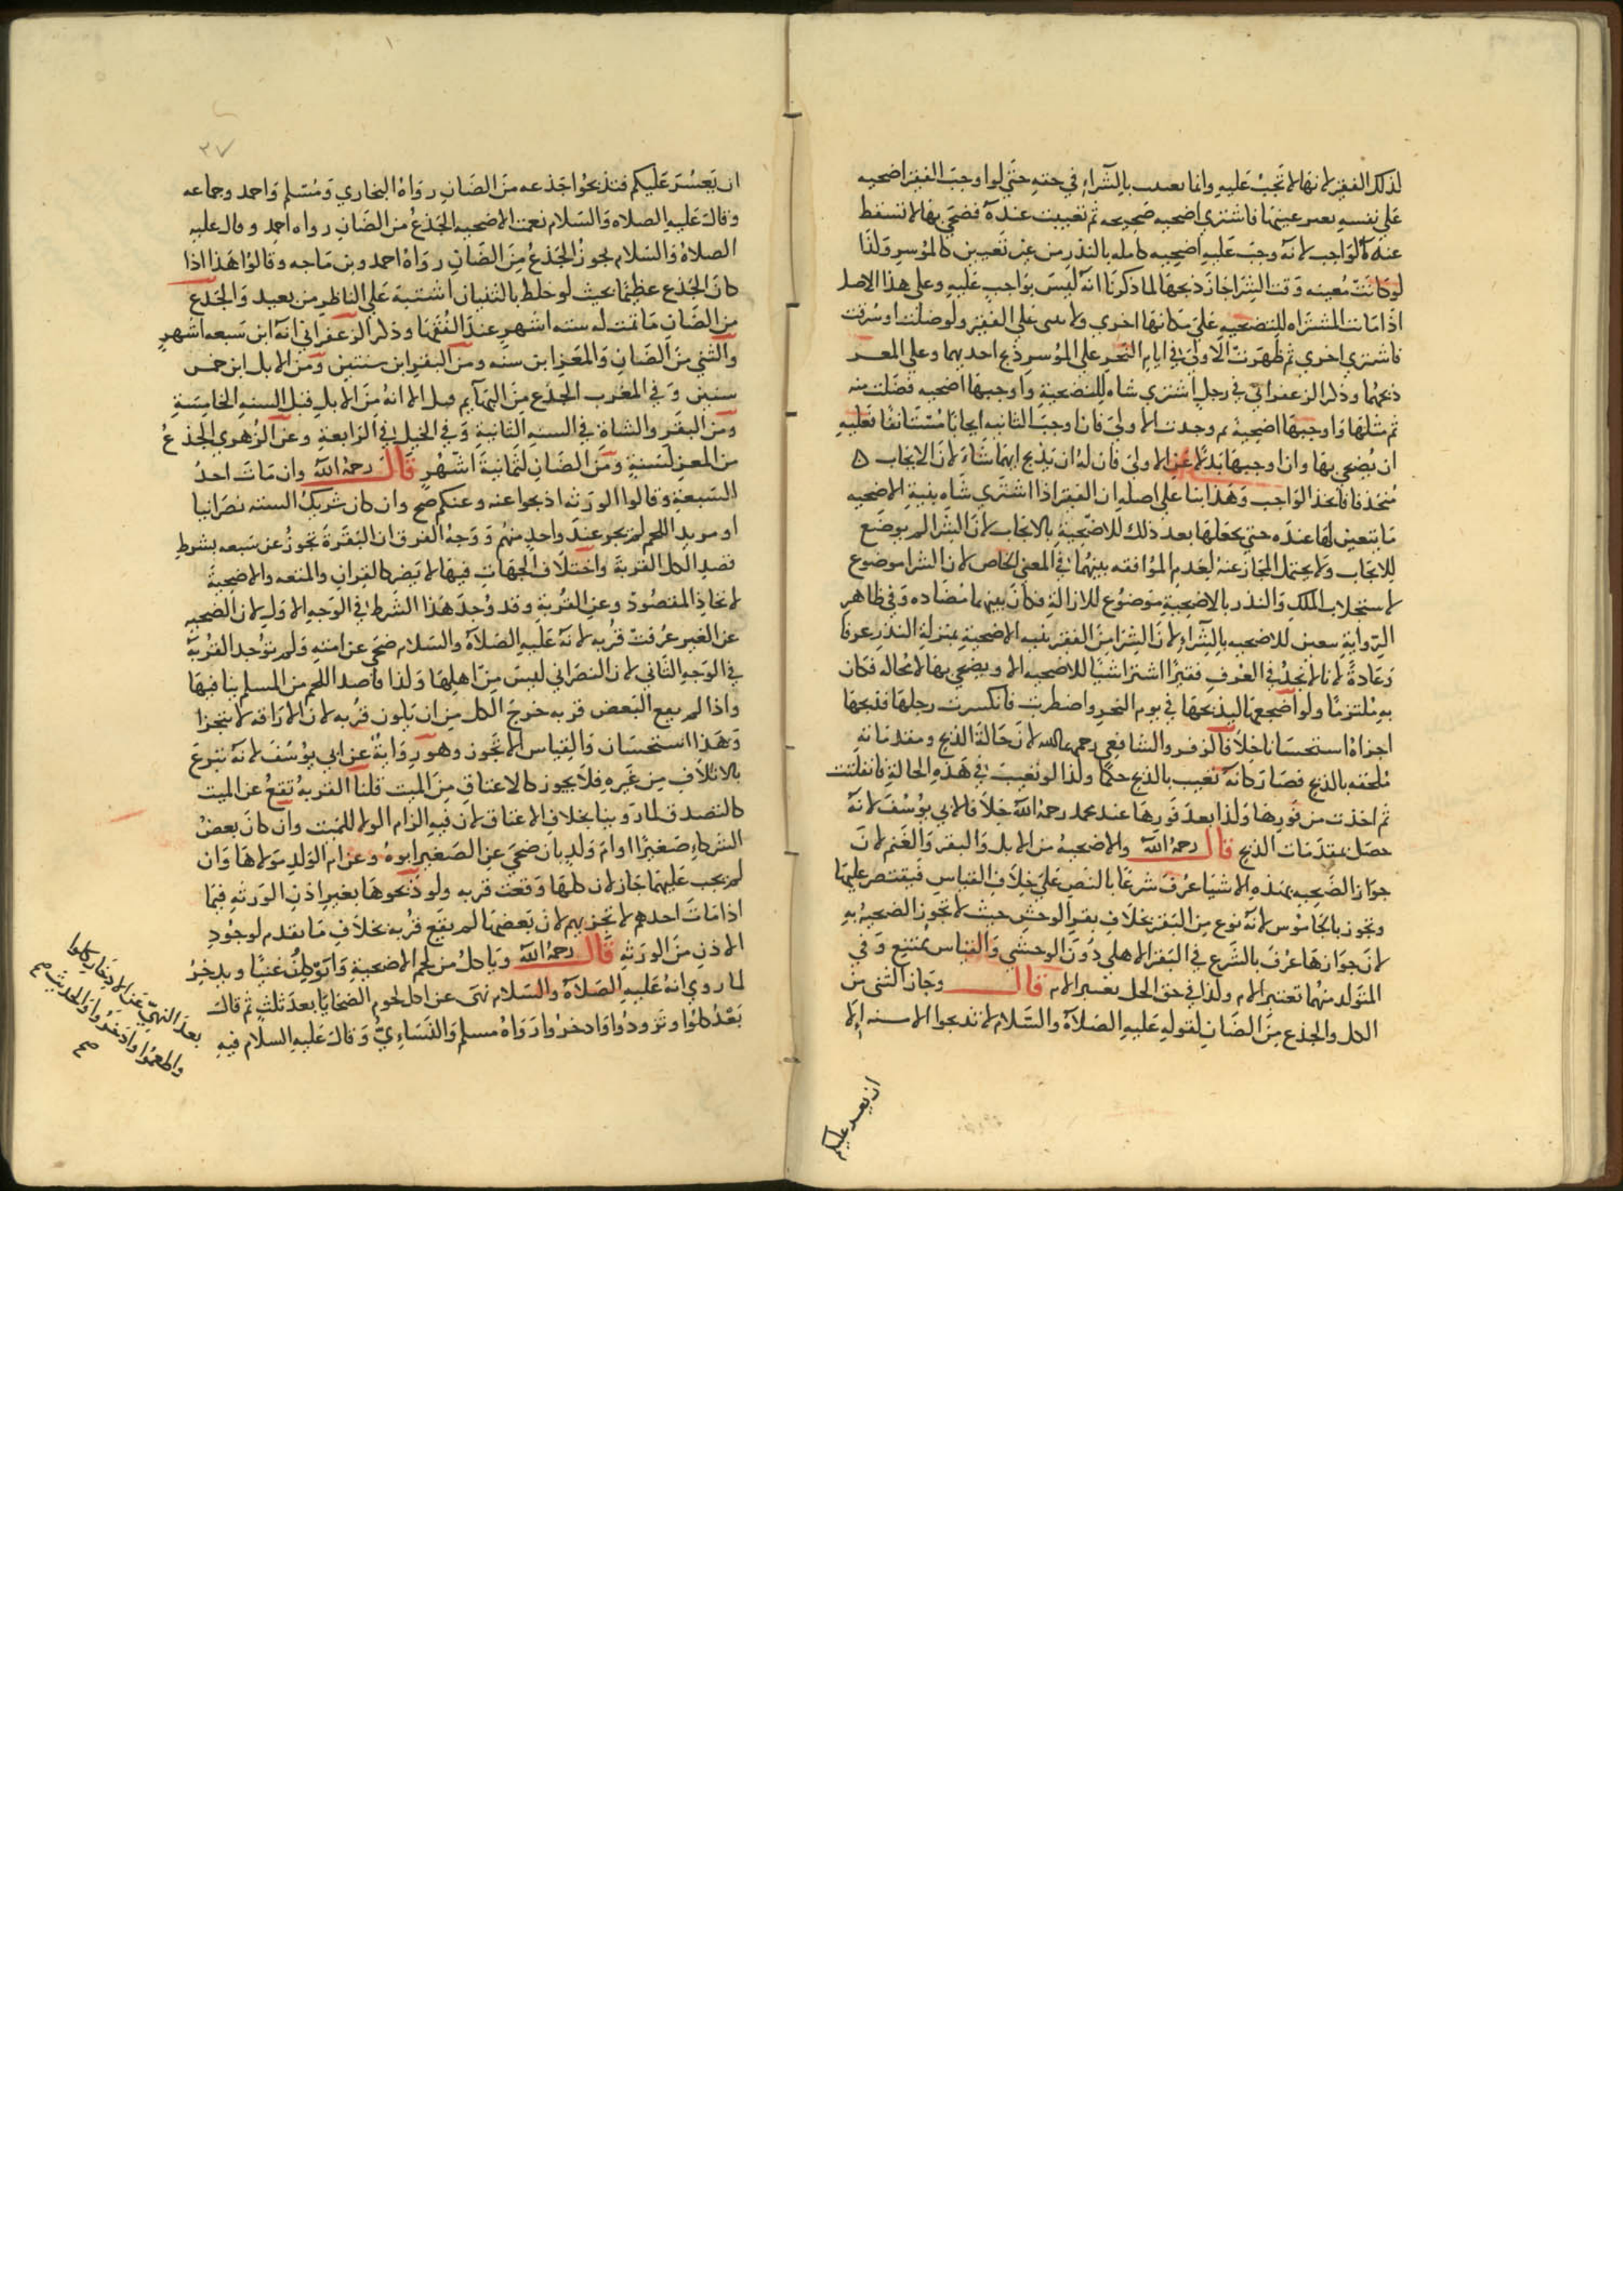 لذلك الفقير لانها لا تجب عليه وانما بالشراء في حقه حتي لو اوجب الفقير اضحيه
علي نفسه بغير عينها فاشتري اضحيه صحيحه ثم تعيبت عنده فضحي بها لا تسقط
عنه الواجب لانه وجب عليه اضحيه كامله بالنذر من غير تعيين كالموسر ولذا
لو كانت معيبه وقت الشرا جاز ذبحها لما ذكرنا انه ليس بواجب عليه وعلي هذا الاصل
اذا ماتت المشتراه للتضحيه علي مكانها اخري ولا شي علي الفقير ولو ضلت او سرقت
فاشتري اخري ثم ظهرت الاولي في ايام النحر علي الموسر ذبح احديهما وعلي المعسر
ذبحهما وذكر الزعفراني في رجل اشتري شاه للتضحية واوجبها اضحيه فضلت منه
ثم مثلها واوجبها اضحية ثم وجدت الاولي فان اوجب الثانيه ايجابا مستانفا فعليه
ان يضحي بها وان اوجبها بدلا عن الاولي فان له ان يذبح ايهما شاء لان الايجاب
متحد فاتحد الواجب وهذا بنا علي اصله ان الفقير اذا اشتري شاه بنية الاضحيه
ما يتعين لها عنده حتي يجعلها بعد ذلك للاضحية بالايجاب لان الشرا لم يوضع
للايجاب ولا يحتمل المجاز عنه لعدم الموافقه بينهما في المعني الخاص لان الشرا موضوع
لاستجلاب الملك والنذر بالاضحية موضوع للازالة فكان بينهما مضاده وفي ظاهر
الرواية يتعين للاضحيه بالشراء لان الشرا من الفقير بنيه الاضحية بمنزلة النذر عرفا
وعادة لانا لا نجد في العرف فقيرا اشترا شيا للاضحيه الا ويضحي بها لا محاله فكان
به ملتزما ولو اضجعها ليذبحها في يوم النحر واضطربت فانكسرت رجلها فذبحها
اجزاه استحسانا خلافا لزفر والشافعي رحمهما الله لان حالة الذبح ومقدماته
ملحقه بالذبح فصار كانه تعيب بالذبح حكما ولذا لو تعيبت في هذه الحالة فانفلتت
ثم اخذت من فورها ولذا بعد فورها عند محمد رحمه الله خلافا لابي يوسف لانه
حصل بمقدمات الذبح قال رحمه الله والاضحية من الابل والبقر والغنم لان
جواز الضحيه بهذه الاشيا عرف شرعا بالنص علي خلاف القياس فيقتصر عليها
وتجوز بالجاموس لانه نوع من البقر بخلاف بقر الوحش حيث لا تجوز الضحية به
لان جوازها عرف بالشرع في البقر الاهلي دون الوحشي والقياس ممتنع وفي
المتولد منهما تعتبر الام ولذا في حق الحل تعتبر الام قال وجاز الثني من
الكل والجذع من الضان لقوله عليه الصلاة والسلام لا تذبحوا الا مسنه الا
ان يعسر عليكم
٣٧
ان يعسر عليكم فتذبحوا جذعه من الضان رواه البخاري ومسلم واحمد وجماعه
وقال عليه الصلاه والسلام نعمت الاضحيه الجذع من الضان رواه احمد وقال عليه
الصلاة والسلام يجوز الجذع من الضان رواه احمد وبن ماجه وقالوا هذا اذا
كان الجذع عظيما بحيث لو خلط بالثنيان اشتبه علي الناظر من بعيد والجذع
من الضان ما تمت له سته اشهر عند الفقها وذكر الزعفراني انه ابن سبعه اشهر
والثني من الضان والمعز ابن سنه ومن البقر ابن سنتين ومن الابل ابن خمس
سنين وفي المغرب الجذع من البهايم قبل الا انه من الابل قبل السنه الخامسة
ومن البقر والشاة في السنه الثانية وفي الخيل في الرابعة وعن الزهري الجذع
من المعز لسنة ومن الضان لثمانية اشهر قال رحمه الله وان مات احد
السبعة وقالوا الورثه اذبحوا عنه وعنكم صح وان كان شريك الستة نصرانيا
او مريد اللحم لم يجز عند واحد منهم ووجه الفرق ان البقرة تجوز عن سبعه بشرط
قصد الكل القربة واختلاف الجهات فيها لا يضر كالقران والمتعه والاضحية
لاتحاد المقصود وعن القربة وقد وجد هذا الشرط في الوجه الاول لان الضحيه
عن الغير عرفت قربه لانه عليه الصلاة والسلام ضحي عن امته ولم توجد القربة
في الوجه الثاني لان النصراني ليس من اهلها ولذا قاصد اللحم من المسلم ينافيها
واذا لم يقع البعض قربه خرج الكل من ان يكون قربه لان الاراقه لا تتجزا
وهذا استحسان والقياس الا تجوز وهو رواية عن ابي يوسف لانه تبرع
بالاتلاف من غيره فلا يجوز كالاعتاق من الميت قلنا القربة تقع عن الميت
كالتصدق لما روينا بخلاف الاعتاق لان فيه الزام الولا للميت وان كان بعض
الشركاء صغيرا او ام ولد بان ضحي عن الصغير ابوه وعن ام الولد مولاها وان
لم يجب عليهما جاز لان كلها وقعت قربه ولو ذبحوها بغير اذن الورثه فيما
اذا مات احدهم لا تجزيهم لان بعضها لم يقع قربه بخلاف ما تقدم لوجود
الاذن من الورثه قال رحمه الله وياكل من لحم الاضحية ويوكل غنيا ويدخر
لما روي انه عليه الصلاة والسلام نهي عن اكل لحوم الضحايا بعد ثلث ثم قال
بعد كلوا وتزودوا وادخروا رواه مسلم والنساءي وقال عليه السلام فيه
بعد النهي عن الادخار كلوا
واطعموا وادخروا والحديث صح
صح